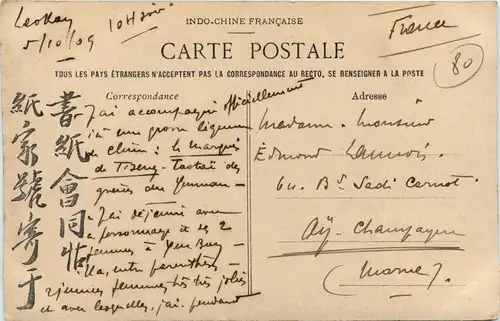 Laokay
5/10/09
10H Soir
INDO-CHINE FRANÇAISE
CARTE POSTALE
France
80
TOUS LES PAYS ÉTRANGERS N'ACCEPTENT PAS LA CORRESPONDANCE AU RECTO. SE RENSEIGNER A LA POSTE
Correspondance
J'ai accompagné officiellement
ici un gros légume
de Chine: le Marquis
de Tseng - Taotaï des
du Yunnan -
J'ai déjeuné avec
personnage et ses 2
femmes à Yen Bay -
entre parenthèses -
2 jeunes femmes très très jolies
et avec lesquelles, j'ai, pendant
書紙會同
紙家號寄于
Adresse
Madame - Monsieur
Edmond Launois
64 Bd Sadi Carnot
Aÿ - Champagne
(Marne).